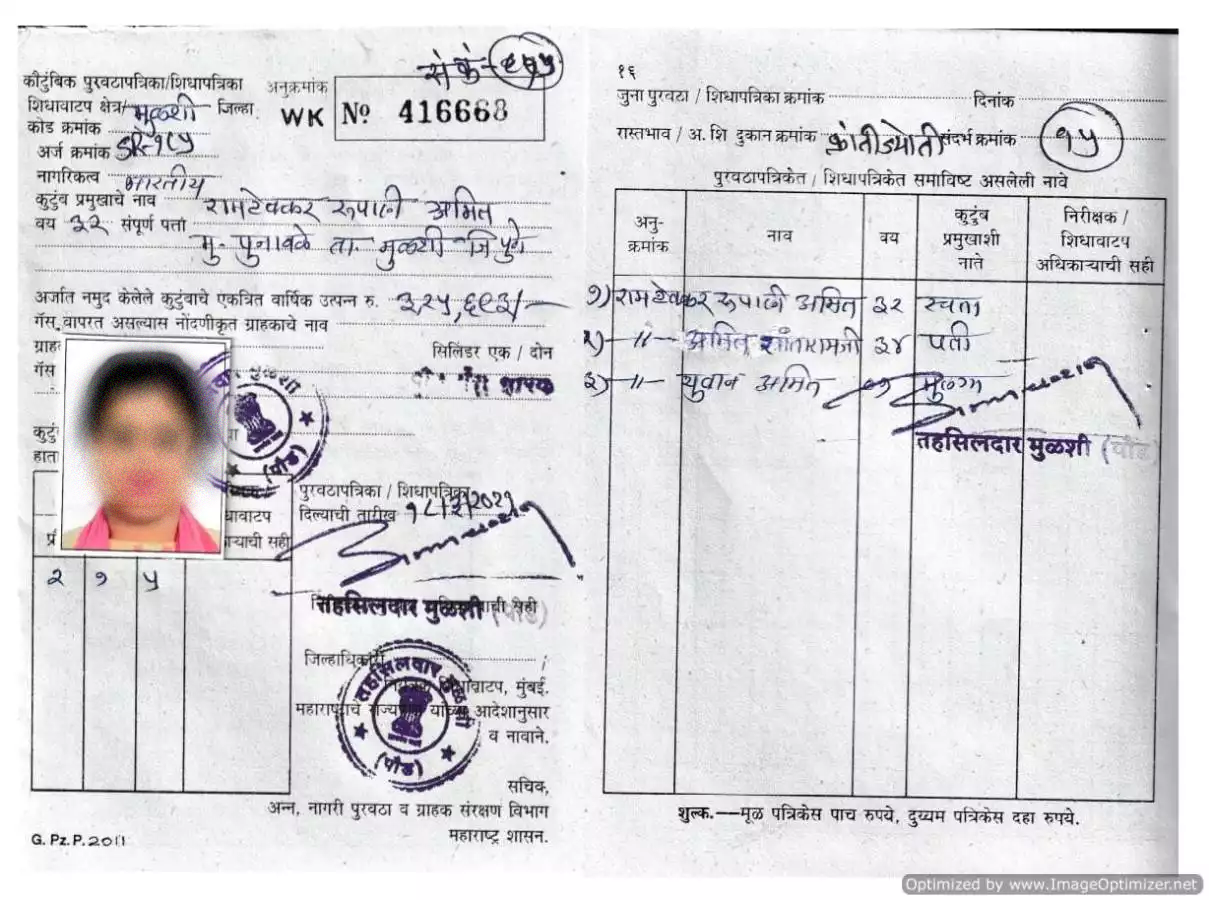 से कें - ६१५
कौटुंबिक पुरवठापत्रिका/शिधापत्रिका
अनुक्रमांक
शिधावाटप क्षेत्र/ मुळशी जिल्हा
WK № 416668
कोड क्रमांक
अर्ज क्रमांक SR-१८५
नागरिकत्व भारतीय
कुटुंब प्रमुखाचे नाव रामटेक्कर रुपाली अमित
वय ३२ संपूर्ण पत्ता
मु. पुनावळे ता. मुळशी जि पुणे
अर्जात नमुद केलेले कुटुंबाचे एकत्रित वार्षिक उत्पन्न रु. ३२५,६९३/-
गॅस वापरत असल्यास नोंदणीकृत ग्राहकाचे नाव
ग्राह
सिलिंडर एक / दोन
गॅस
धारक
कुटुं
हाता
पुरवठापत्रिका / शिधापत्रिका
धावाटप दिल्याची तारीख १८/३/२०२१
ऱ्याची सही
२ १ ५
तहसिलदार मुळशी (पौड) ची सही
जिल्हाधिकारी
तहसिलदार मुळशी
(पौड)
शिधावाटप, मुंबई.
महाराष्ट्राचे राज्यपाल यांच्या आदेशानुसार
व नावाने.
सचिव,
अन्न, नागरी पुरवठा व ग्राहक संरक्षण विभाग
महाराष्ट्र शासन.
G. Pz. P. 2011
१६
जुना पुरवठा / शिधापत्रिका क्रमांक दिनांक
रास्तभाव / अ. शि दुकान क्रमांक क्रांतीज्योती संदर्भ क्रमांक १५
पुरवठापत्रिकेत / शिधापत्रिकेत समाविष्ट असलेली नावे
अनु-क्रमांक नाव वय कुटुंब प्रमुखाशी नाते निरीक्षक / शिधावाटप अधिकाऱ्याची सही
१) रामटेक्कर रुपाली अमित ३२ स्वता
२) -॥- अमित शांतारामजी ३४ पती
३) -॥- युवान अमित मुलगा
तहसिलदार मुळशी (पौड)
शुल्क.—मूळ पत्रिकेस पाच रुपये, दुय्यम पत्रिकेस दहा रुपये.
Optimized by www.ImageOptimizer.net